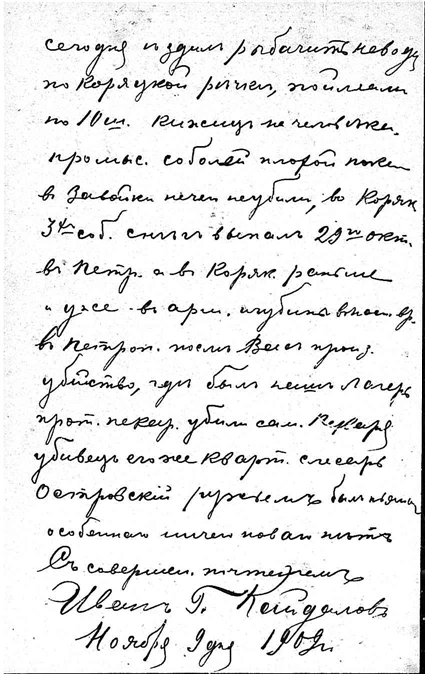 сегодня ѣздилъ рыбачить неводу
по Коряцкой рѣчки, поймали
по 10 ш. кижуц на человѣка,
промыс. соболей плохой пока
в Завойки ничего не убили, во Коряк
3 соб. снегъ выпалъ 29го окт.
въ Петр. а въ Коряк. раньше
и уже в арш. глубины
въ Петроп. послѣ Васъ произ.
убийство, гдѣ былъ нашъ лагерь
прот. пекар. убили сам. Пекаря
убивецъ его же кварт. слесарь
Островскій ружьемъ былъ пьяный
особеннаго ничего новаго нѣтъ
Съ совершен. почтеніемъ
Иванъ Г. Кайдаловъ
Ноября 9 дня 1909 г.